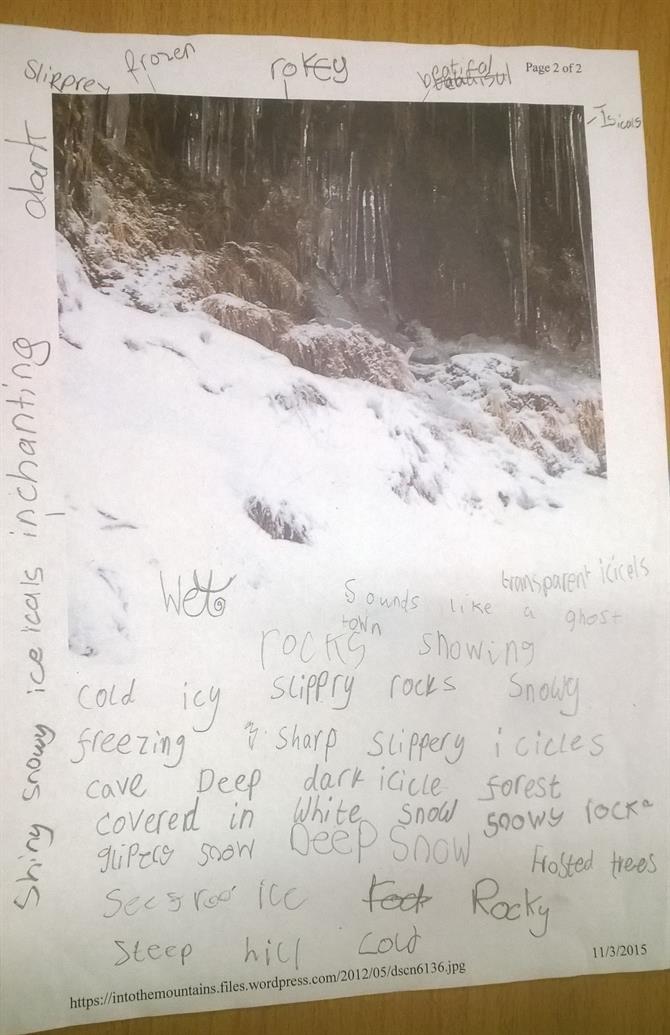 Slipprey frozen rokey beatifal Page 2 of 2
Isicals
dark
inchanting
Shiny snowy ice icals
Wet
transparent icicels
Sounds like a ghost
town
rocks snowing
cold icy slippry rocks Snowy
freezing sharp slippery icicles
cave Deep dark icicle forest
covered in white snow snowy rock
snow Deep Snow
Frosted trees
ice Rocky
Steep hill cold
11/3/2015
https://intothemountains.files.wordpress.com/2012/05/dscn6136.jpg